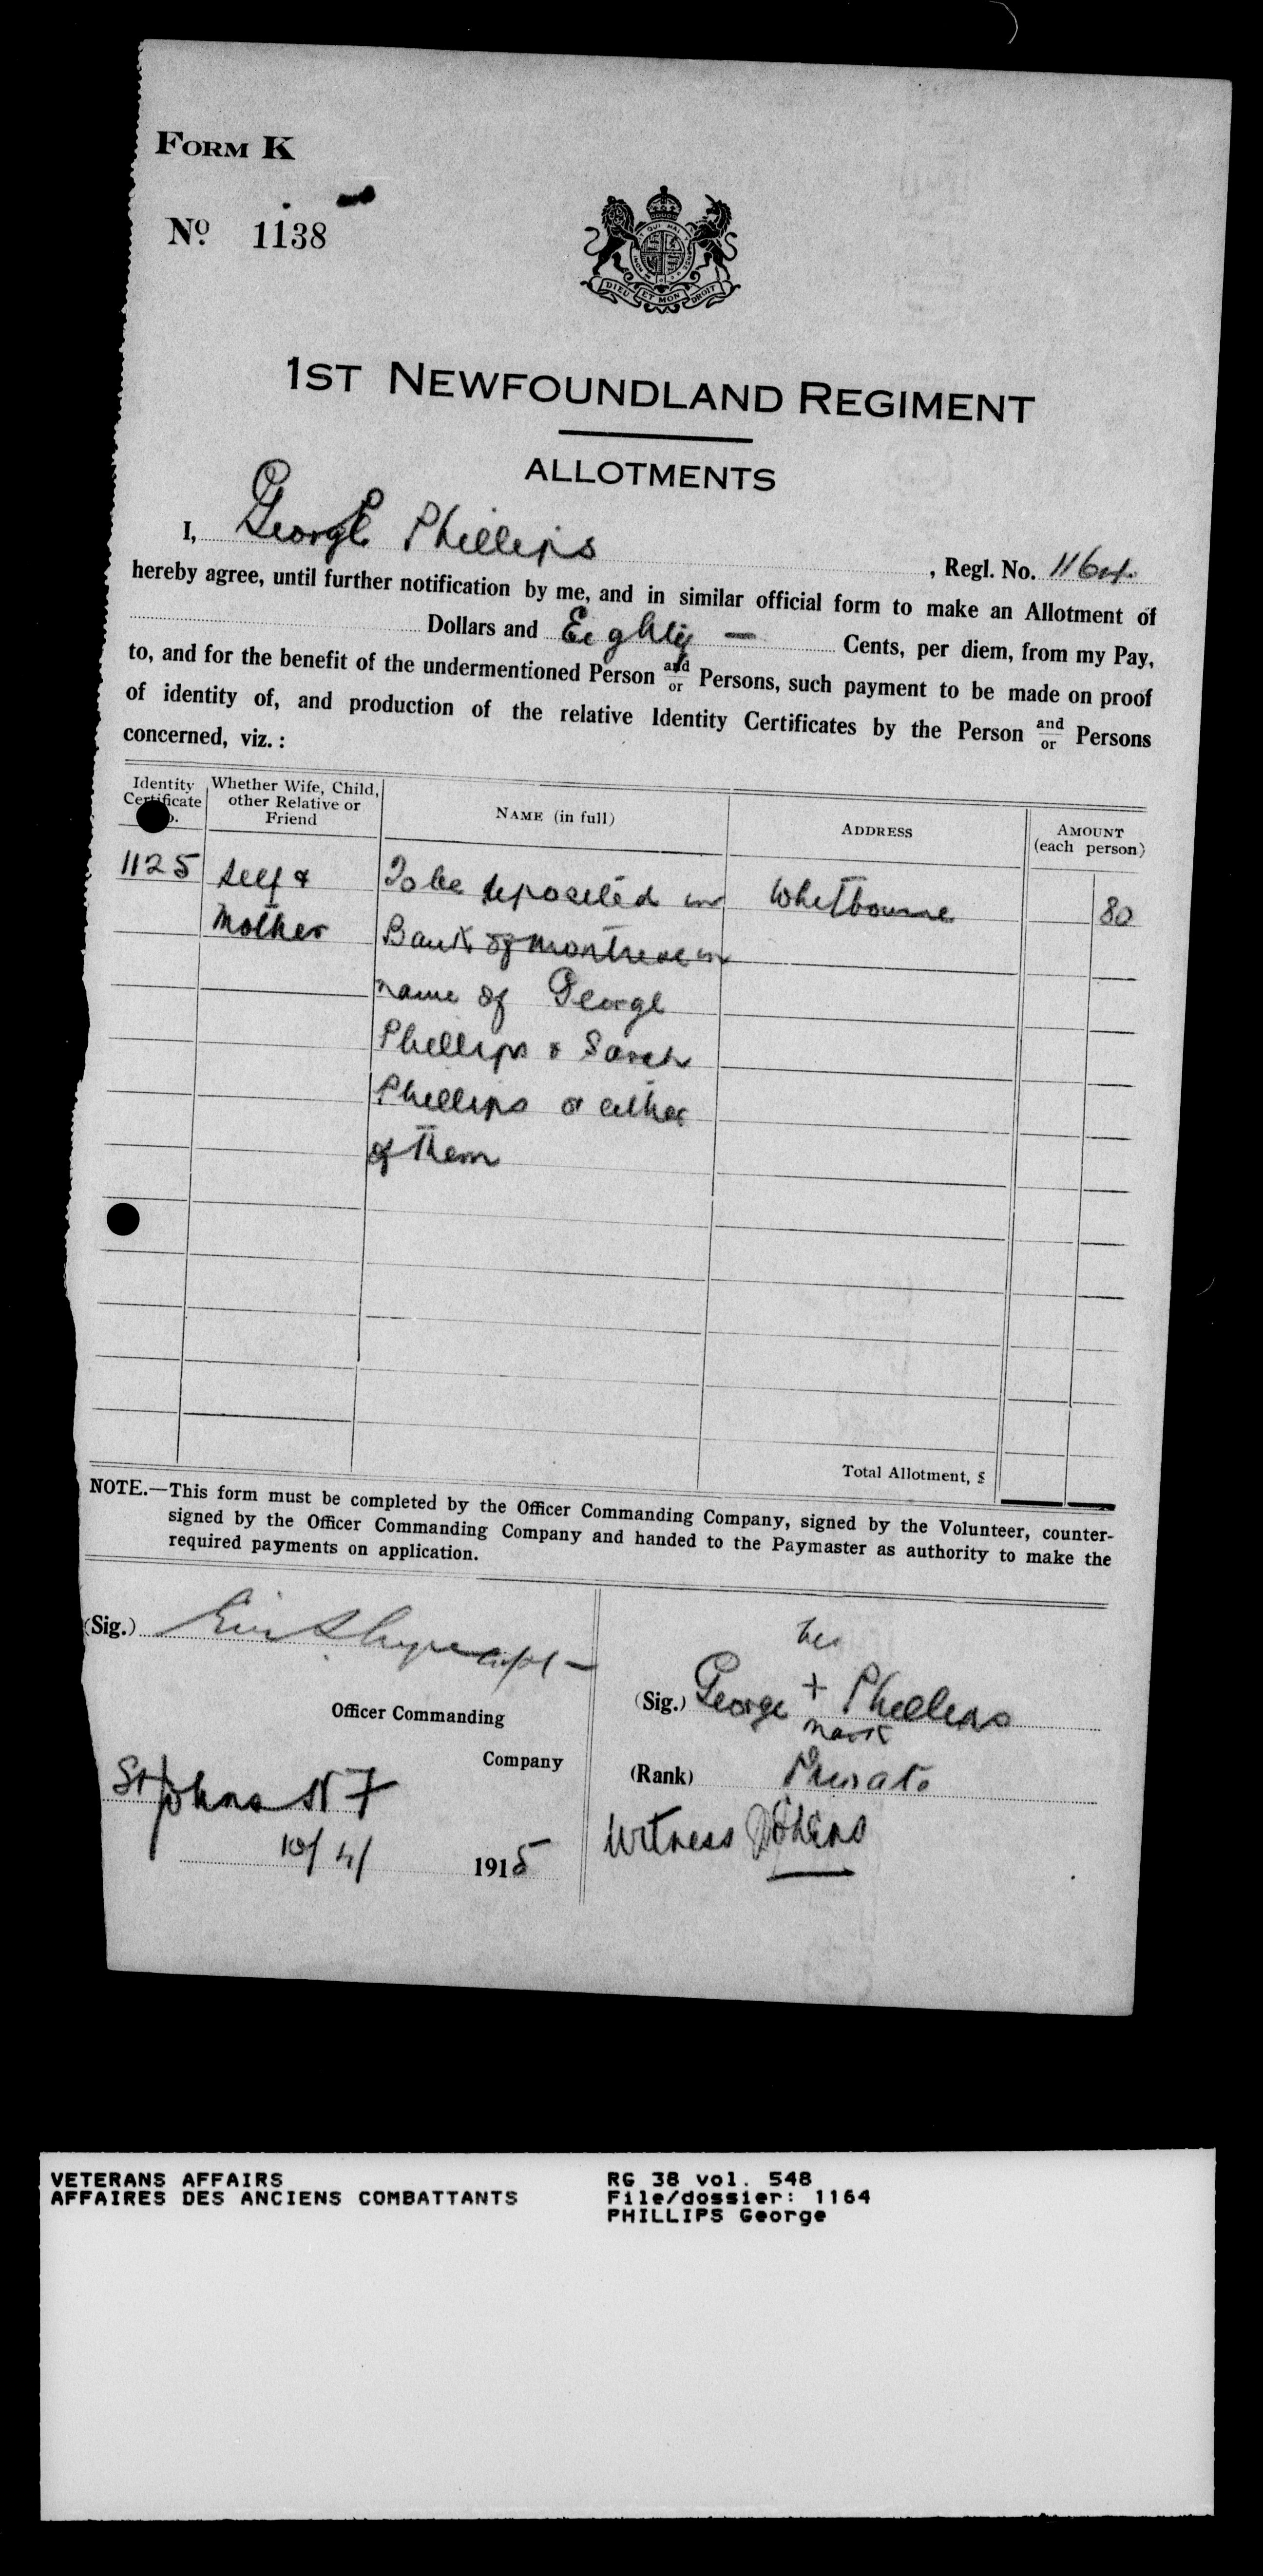 FORM K
No. 1138
DIEU ET MON DROIT
1ST NEWFOUNDLAND REGIMENT
ALLOTMENTS
I, George Phillips, Regl. No. 1164
hereby agree, until further notification by me, and in similar official form to make an Allotment of
Dollars and Eighty — Cents, per diem, from my Pay,
to, and for the benefit of the undermentioned Person and/or Persons, such payment to be made on proof
of identity of, and production of the relative Identity Certificates by the Person and/or Persons
concerned, viz.:
Identity Certificate No. Whether Wife, Child, other Relative or Friend NAME (in full) ADDRESS AMOUNT (each person)
1125 Self & To be deposited in Whitbourne 80
Mother Bank of Montreal in
name of George
Phillips & Sarah
Phillips or either
of them
Total Allotment, $
NOTE.—This form must be completed by the Officer Commanding Company, signed by the Volunteer, counter-
signed by the Officer Commanding Company and handed to the Paymaster as authority to make the
required payments on application.
(Sig.) Capt —
Officer Commanding
Company
St Johns N F
10/4/ 1915
his
(Sig.) George + Phillips
mark
(Rank) Private
Witness
VETERANS AFFAIRS
AFFAIRES DES ANCIENS COMBATTANTS
RG 38 vol. 548
File/dossier: 1164
PHILLIPS George